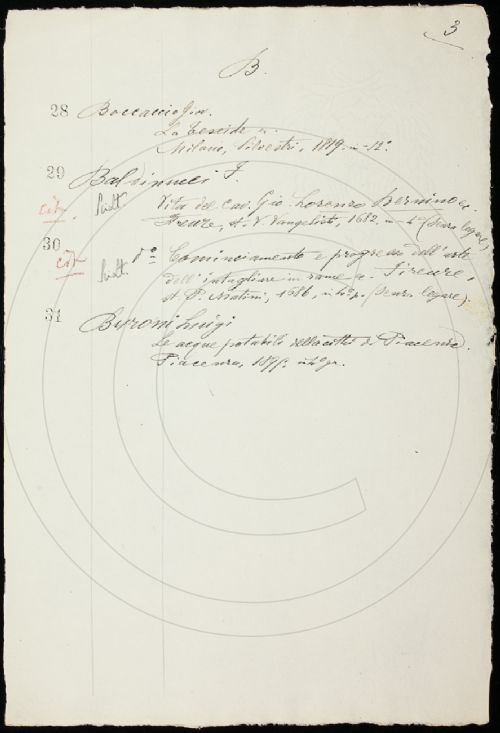 3
B.
28 Boccaccio Gio.
La Teseide in
Milano, Silvestri, 1819. in-12°.
29 Baldinucci F.
Vita del Cav. Gio. Lorenzo Bernino e.
Firenze, st. V. Vangelisti, 1682. in-4° (senza legare)
30 d° Cominciamento e progresso dell'arte
dell'intagliare in rame e. Firenze,
st. P. Matini, 1686, in 4° p. (senza legare).
31 Buroni Luigi
Le acque potabili della città di Piacenza.
Piacenza, in 4° gr.